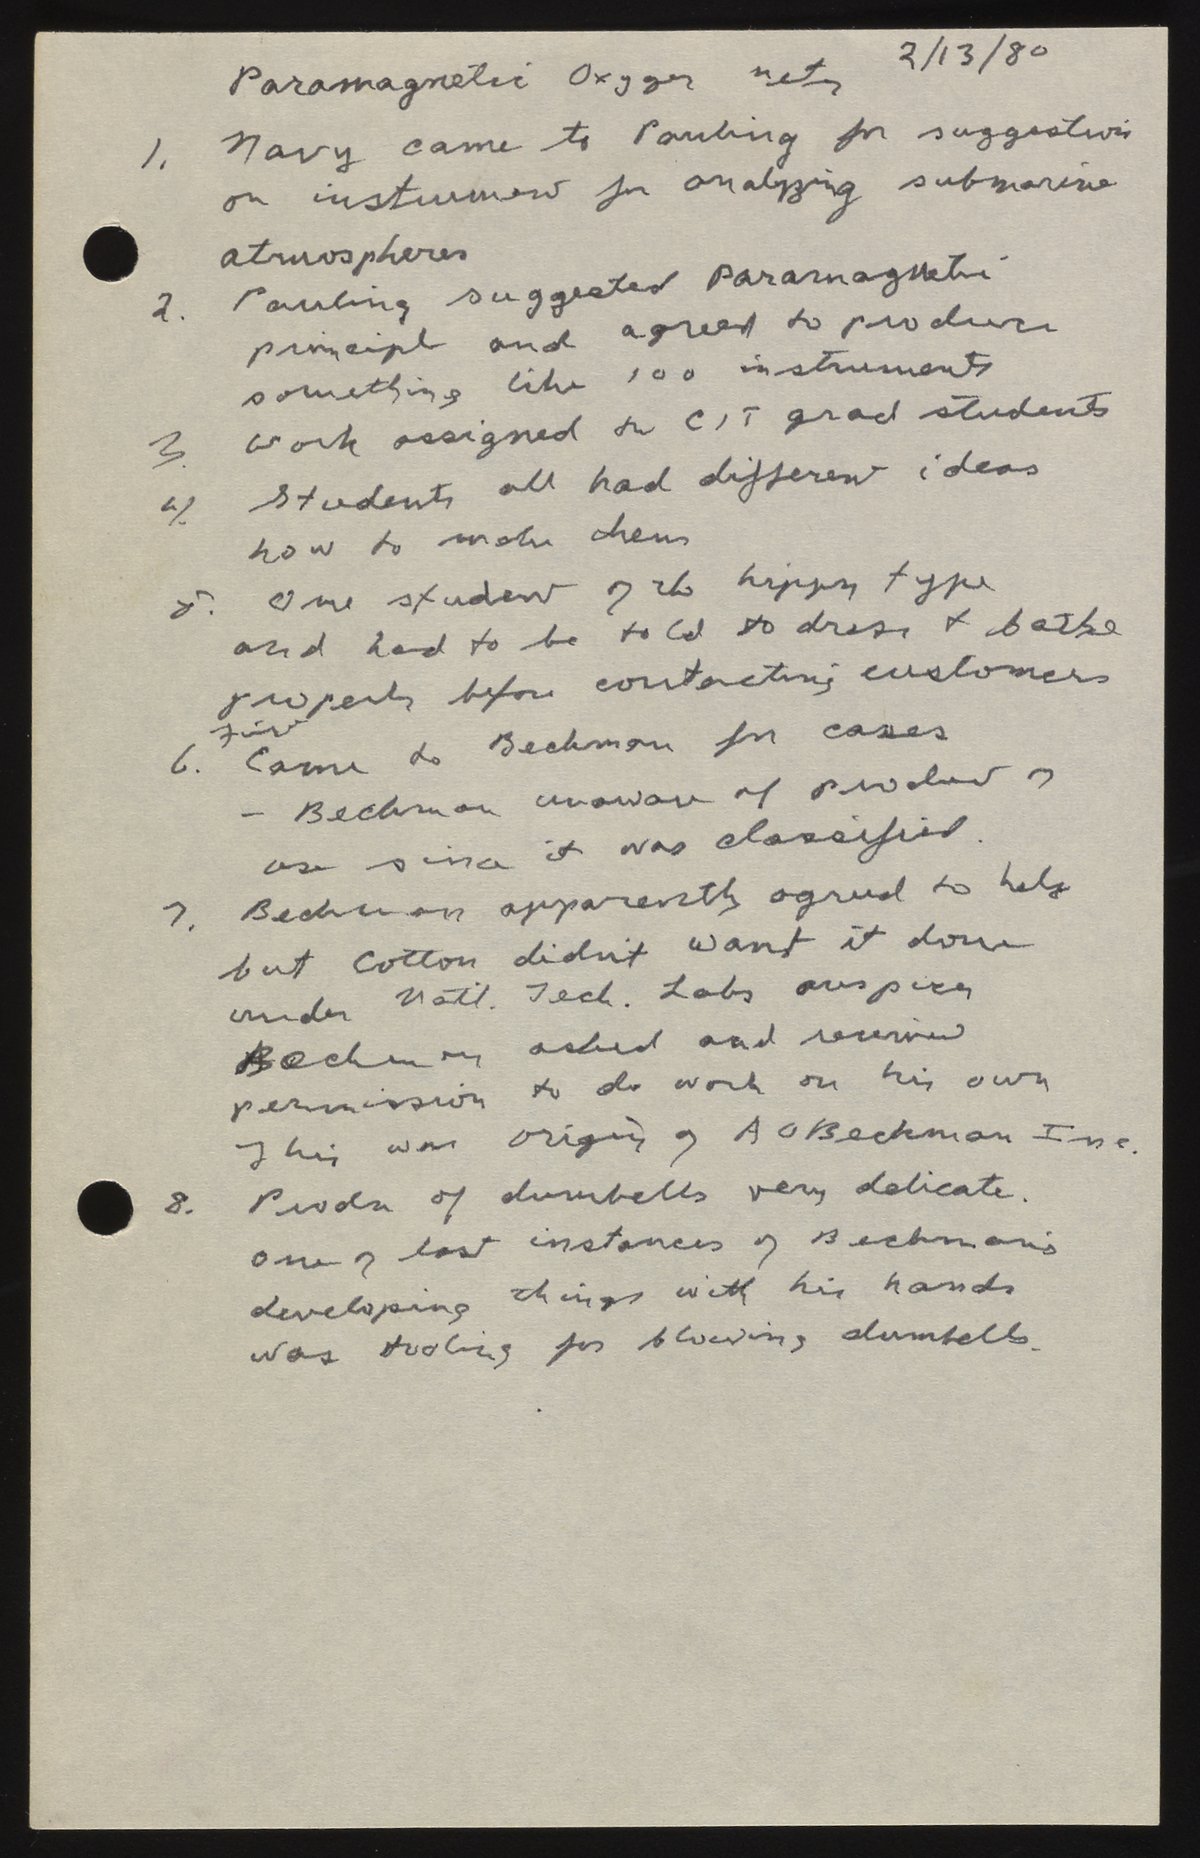 2/13/80
Paramagnetic Oxygen meter
1. Navy came to Pauling for suggestions
on instrument for analyzing submarine
atmospheres
2. Pauling suggested Paramagnetic
principle and agreed to produce
something like 100 instruments
3. Work assigned to CIT grad students
4. Students all had different ideas
how to make them
5. One student of the hippy type
and had to be told to dress & bathe
properly before contacting customers
First
6. Came to Beckman for cases
- Beckman unaware of product or
use since it was classified.
7. Beckman apparently agreed to help
but Cotton didn't want it done
under Natl. Tech. Labs auspices
Beckman asked and received
permission to do work on his own
This was origin of A O Beckman Inc.
8. Prodn of dumbells very delicate.
One of last instances of Beckman's
developing things with his hands
was tooling for blowing dumbells.